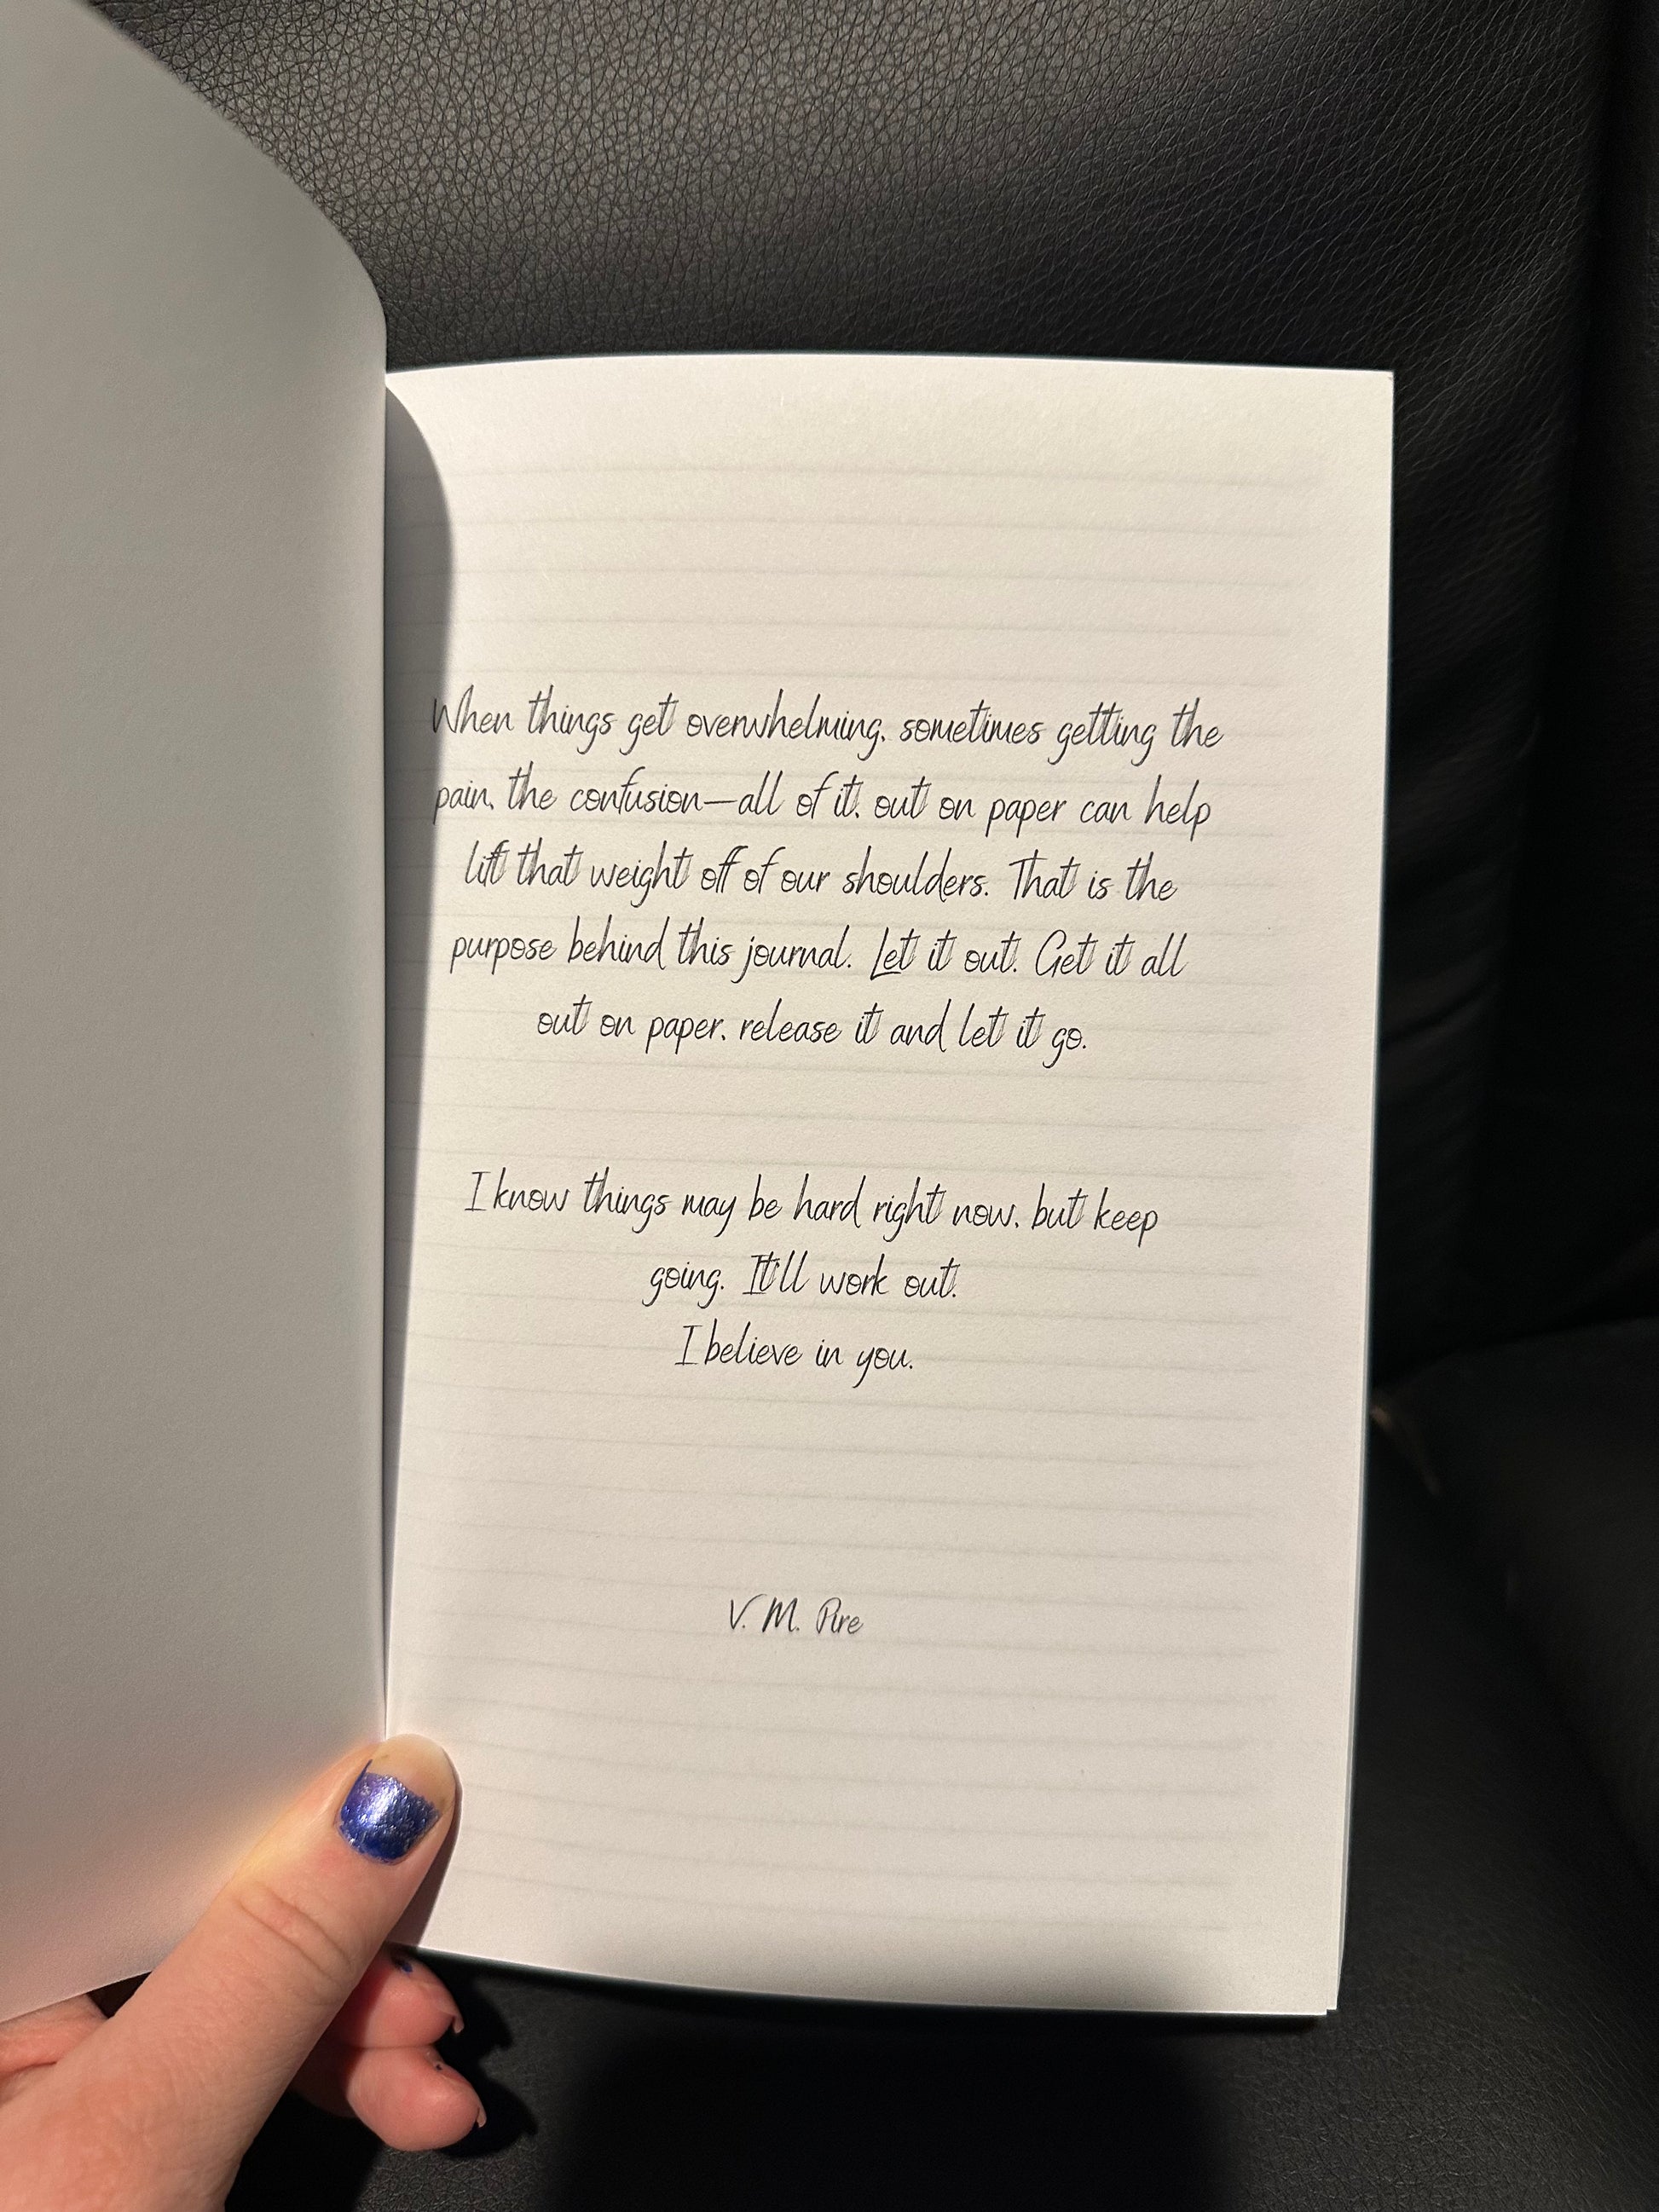 When things get overwhelming, sometimes getting the
pain, the confusion—all of it, out on paper can help
lift that weight off of our shoulders. That is the
purpose behind this journal. Let it out. Get it all
out on paper, release it and let it go.
I know things may be hard right now, but keep
going. It'll work out.
I believe in you.
V. M. Pire